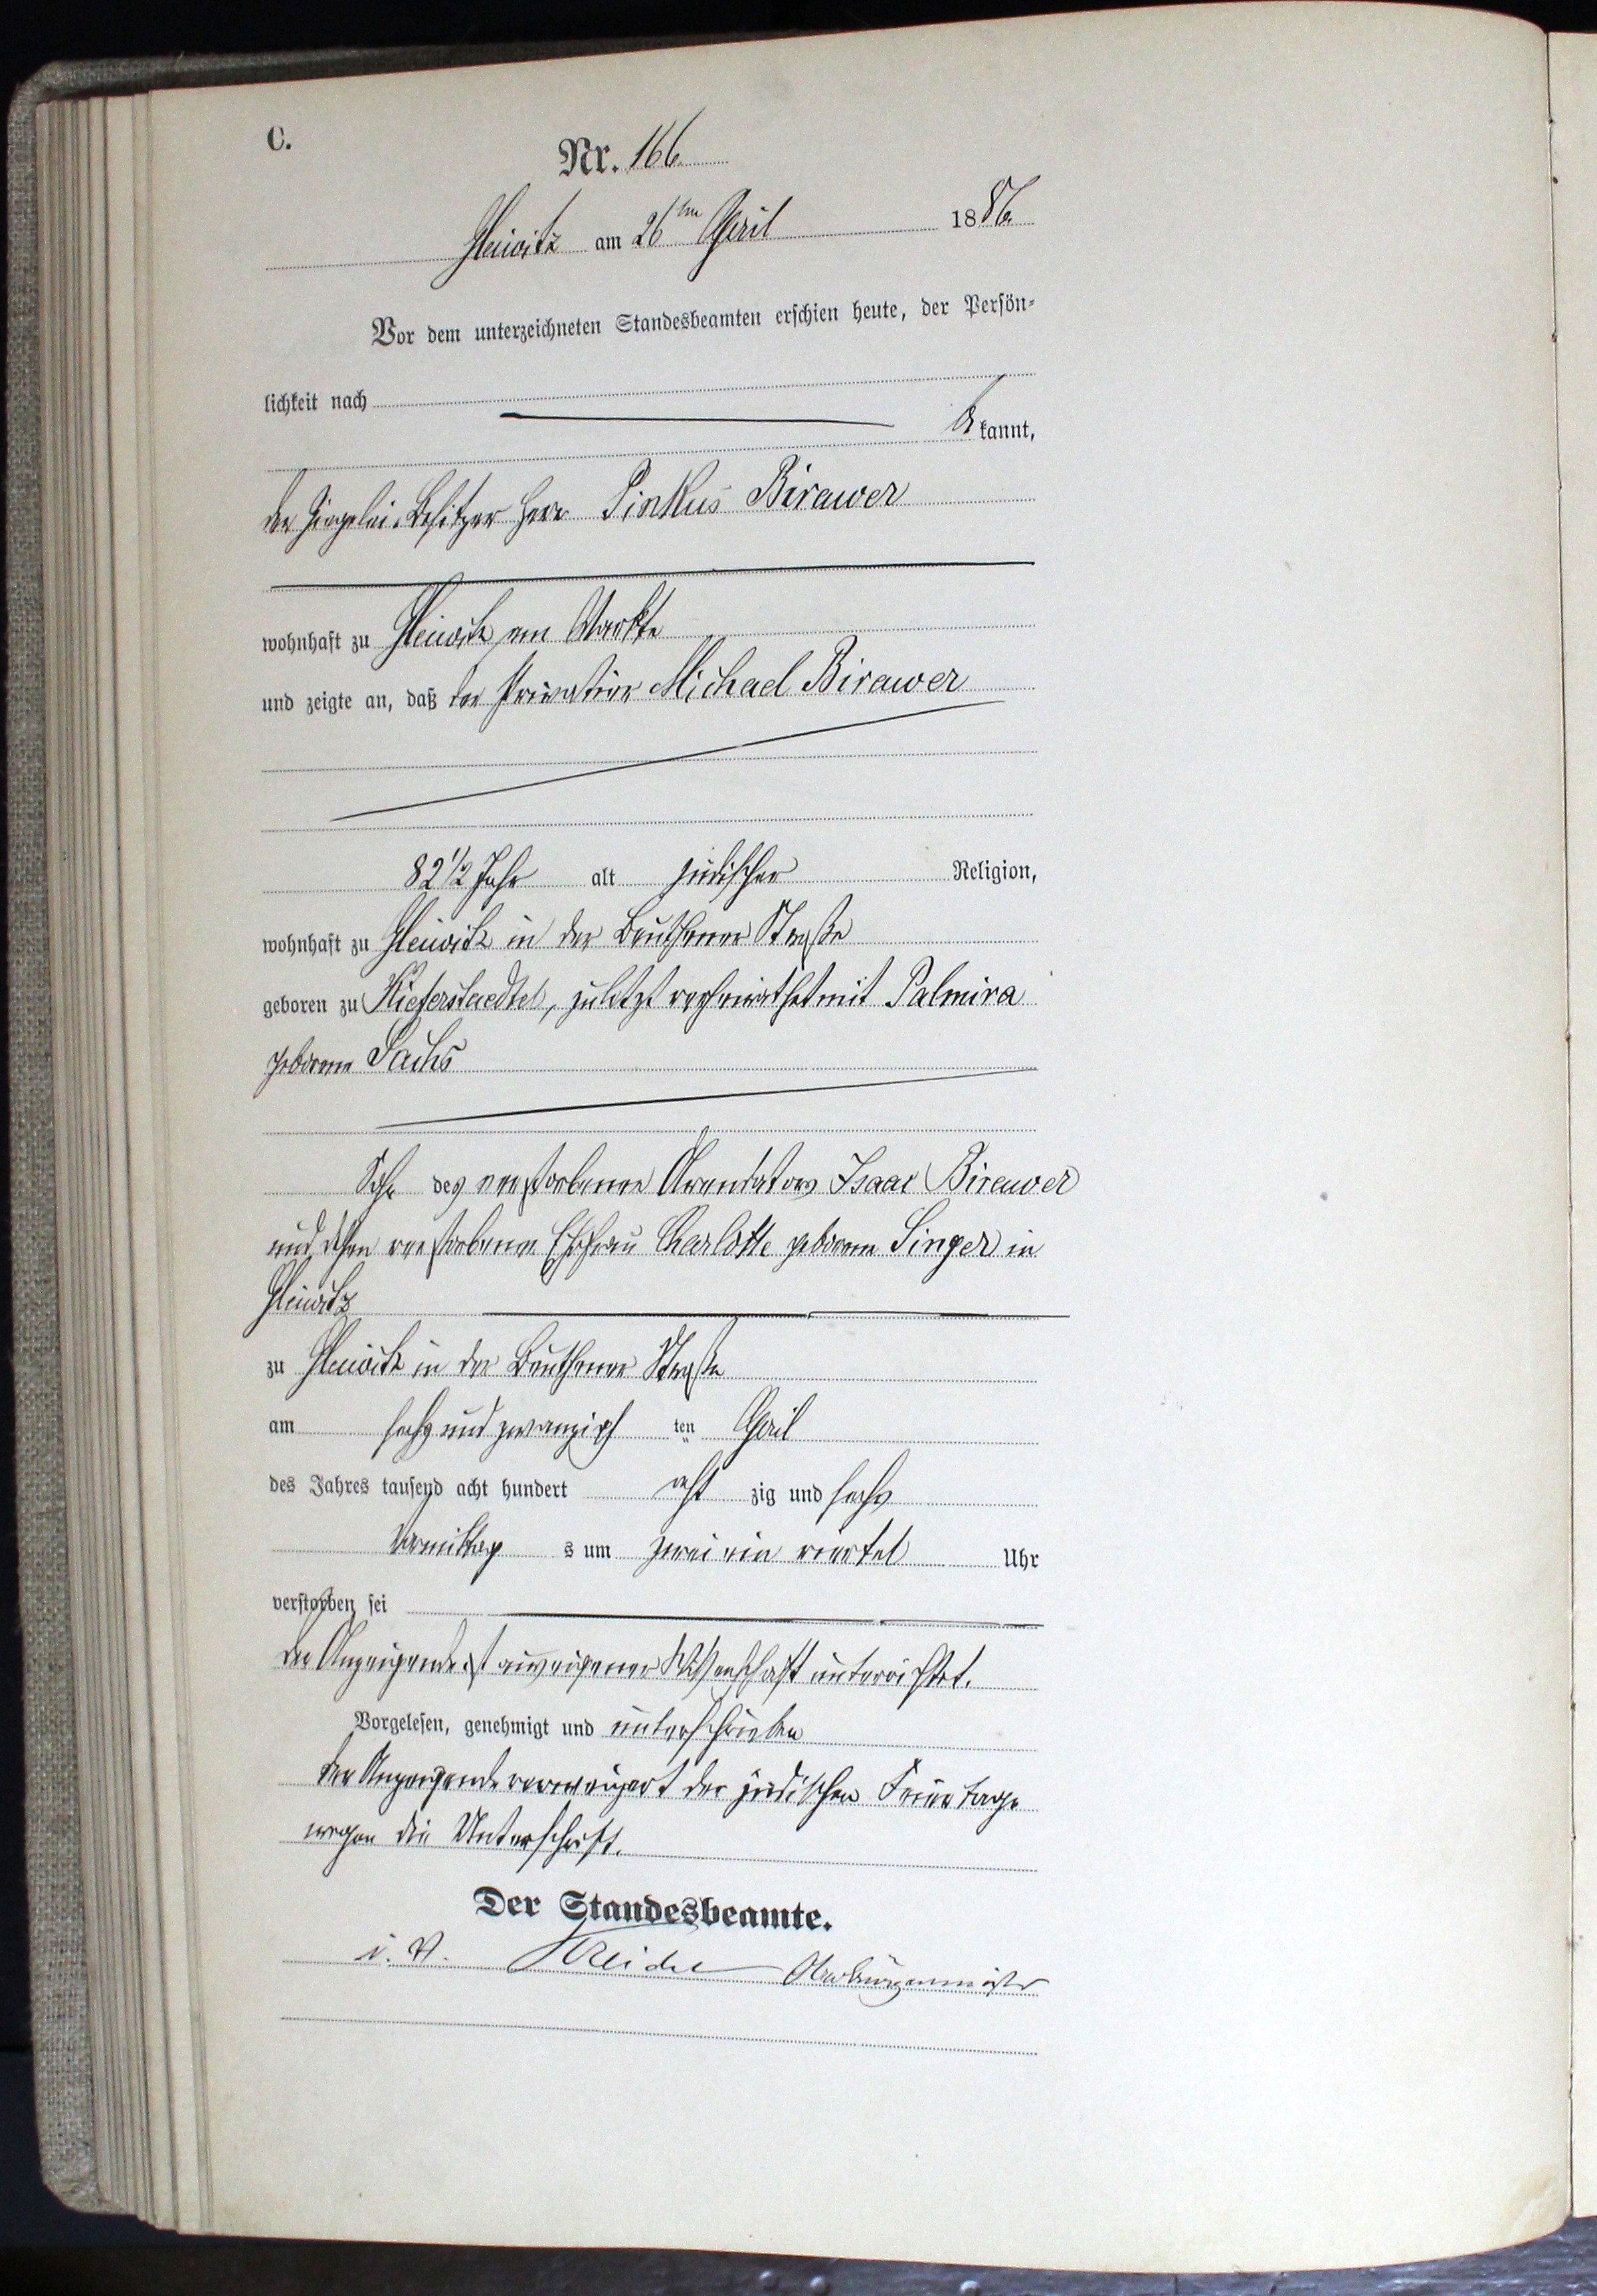 C.
Nr. 166
Gleiwitz am 26ten April 1886
Vor dem unterzeichneten Standesbeamten erschien heute, der Persön-
lichkeit nach
bekannt,
der Ziegelei-Besitzer Herr Pinkus Birawer
wohnhaft zu Gleiwitz am Markte
und zeigte an, daß der Privatier Michael Birawer
82 1/2 Jahr alt jüdischer Religion,
wohnhaft zu Gleiwitz in der Beuthener Straße
geboren zu Kieferstaedtel, zuletzt verheirathet mit Palmira
geborene Sachs
Sohn des verstorbenen Arendators Isaac Birawer
und dessen verstorbenen Ehefrau Charlotte geborene Singer in
Gleiwitz
zu Gleiwitz in der Beuthener Straße
am sechs und zwanzigsten April
des Jahres tausend acht hundert acht zig und sechs
Vormittags um zwei ein viertel Uhr
verstorben sei
der Anzeigende ist aus eigener Wissenschaft unterrichtet.
Vorgelesen, genehmigt und unterschrieben
der Anzeigende verweigert der jüdischen Feiertage
wegen die Unterschrift.
Der Standesbeamte.
i. V. Kreidel Oberbürgermeister